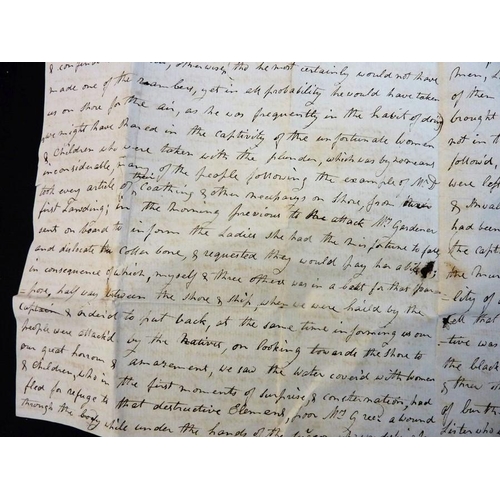 & otherwise, tho he most certainly would not have
made one of the members, yet in all probability he would have taken
us on shore for the air, as he was frequently in the habit of doing
we might have shared in the captivity of the unfortunate women
& Children who were taken with the plunder, which was by no means
inconsiderable, many of the people following the example of Mr
took every article of Cloathing & other on Shore, from their
first Landing; in the Morning previous to the attack Mrs Gardener
sent on board to inform the Ladies she had the misfortune to fall
and dislocate her Collar bone, & requested they would pay her a visit
in consequence of which, myself & three others was in a boat for that pur=
=pose, half way between the shore & ship, when we were hail'd by the
Captain & order'd to put back, at the same time informing us our
people were attack'd by the Natives, on looking towards the Shore to
our great horrour & amazement, we saw the water cover'd with women
& children, who in the first moments of surprise & consternation, had
fled for refuge to that destructive Element, poor Mrs Green a wound
through the body while under the hands of the
men, an
of them
brought
not in t
follow'd
were kep
& Inval
had been
the Capt
the mus
=lity of
tell that
=tive was
the black
& three
of burth
Sister who